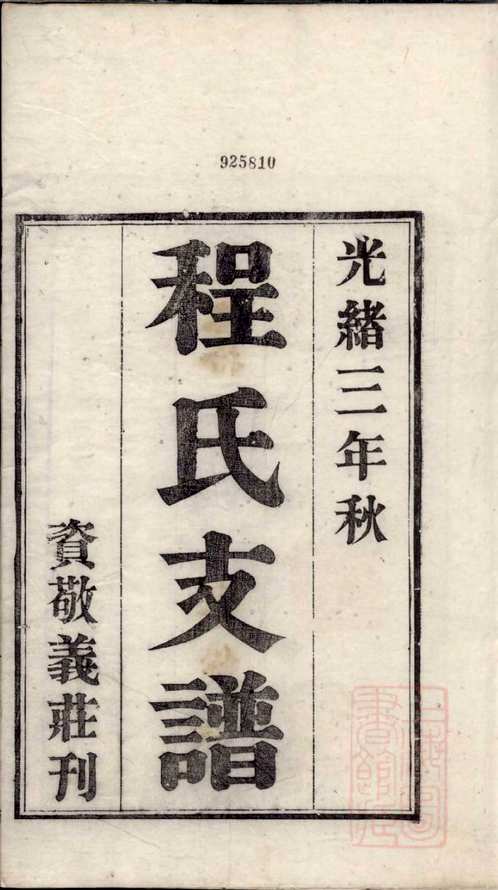 925810
光緒三年秋
程氏支譜
資敬義莊刊